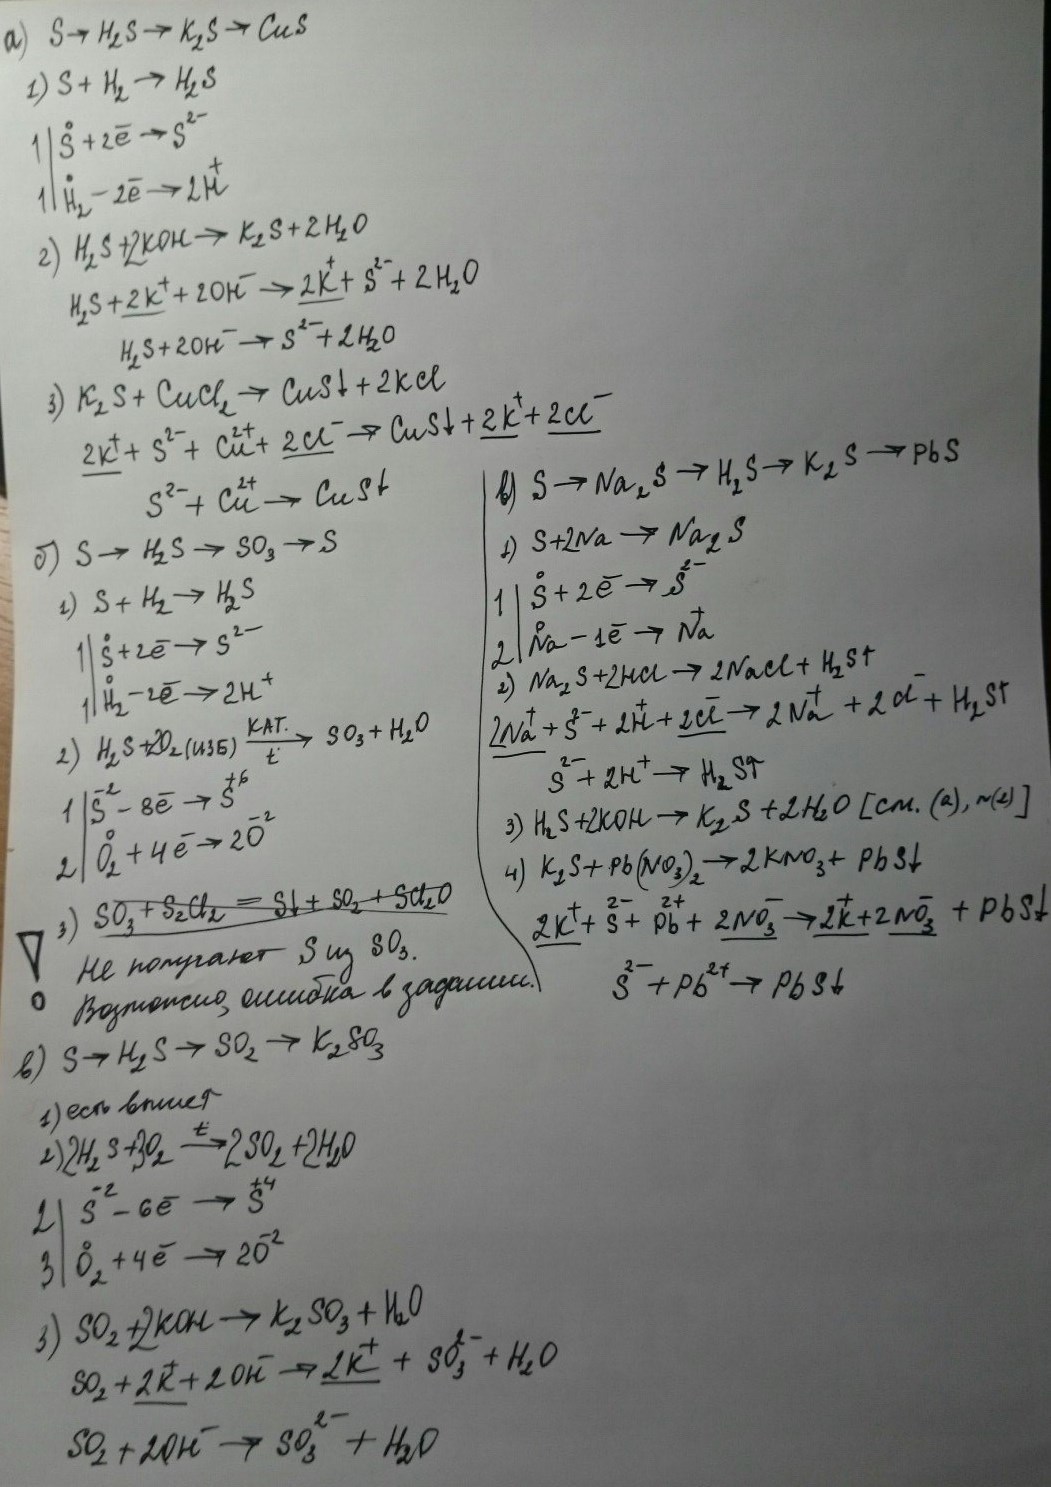 а) S→H₂S→K₂S→CuS
1) S+H₂→H₂S
1| S⁰+2ē→S²⁻
1| H₂⁰-2ē→2H⁺
2) H₂S+2KOH→K₂S+2H₂O
H₂S+2K⁺+2OH⁻→2K⁺+S²⁻+2H₂O
H₂S+2OH⁻→S²⁻+2H₂O
3) K₂S+CuCl₂→CuS↓+2KCl
2K⁺+S²⁻+Cu²⁺+2Cl⁻→CuS↓+2K⁺+2Cl⁻
S²⁻+Cu²⁺→CuS↓
б) S→H₂S→SO₃→S
1) S+H₂→H₂S
1| S⁰+2ē→S²⁻
1| H₂⁰-2ē→2H⁺
2) H₂S+2O₂(ИЗБ) КАТ. t → SO₃+H₂O
1| S⁻²-8ē→S⁺⁶
2| O₂⁰+4ē→2O⁻²
3) SO₃+S₂Cl₂=S↓+SO₂+SCl₂O
! Не получают S из SO₃.
Возможно, ошибка в задании.
в) S→H₂S→SO₂→K₂SO₃
1) есть выше↑
2) 2H₂S+3O₂ t → 2SO₂+2H₂O
2| S⁻²-6ē→S⁺⁴
3| O₂⁰+4ē→2O⁻²
3) SO₂+2KOH→K₂SO₃+H₂O
SO₂+2K⁺+2OH⁻→2K⁺+SO₃²⁻+H₂O
SO₂+2OH⁻→SO₃²⁻+H₂O
в) S→Na₂S→H₂S→K₂S→PbS
1) S+2Na→Na₂S
1| S⁰+2ē→S²⁻
2| Na⁰-1ē→Na⁺
2) Na₂S+2HCl→2NaCl+H₂S↑
2Na⁺+S²⁻+2H⁺+2Cl⁻→2Na⁺+2Cl⁻+H₂S↑
S²⁻+2H⁺→H₂S↑
3) H₂S+2KOH→K₂S+2H₂O [см. (а), ~(2)]
4) K₂S+Pb(NO₃)₂→2KNO₃+PbS↓
2K⁺+S²⁻+Pb²⁺+2NO₃⁻→2K⁺+2NO₃⁻+PbS↓
S²⁻+Pb²⁺→PbS↓